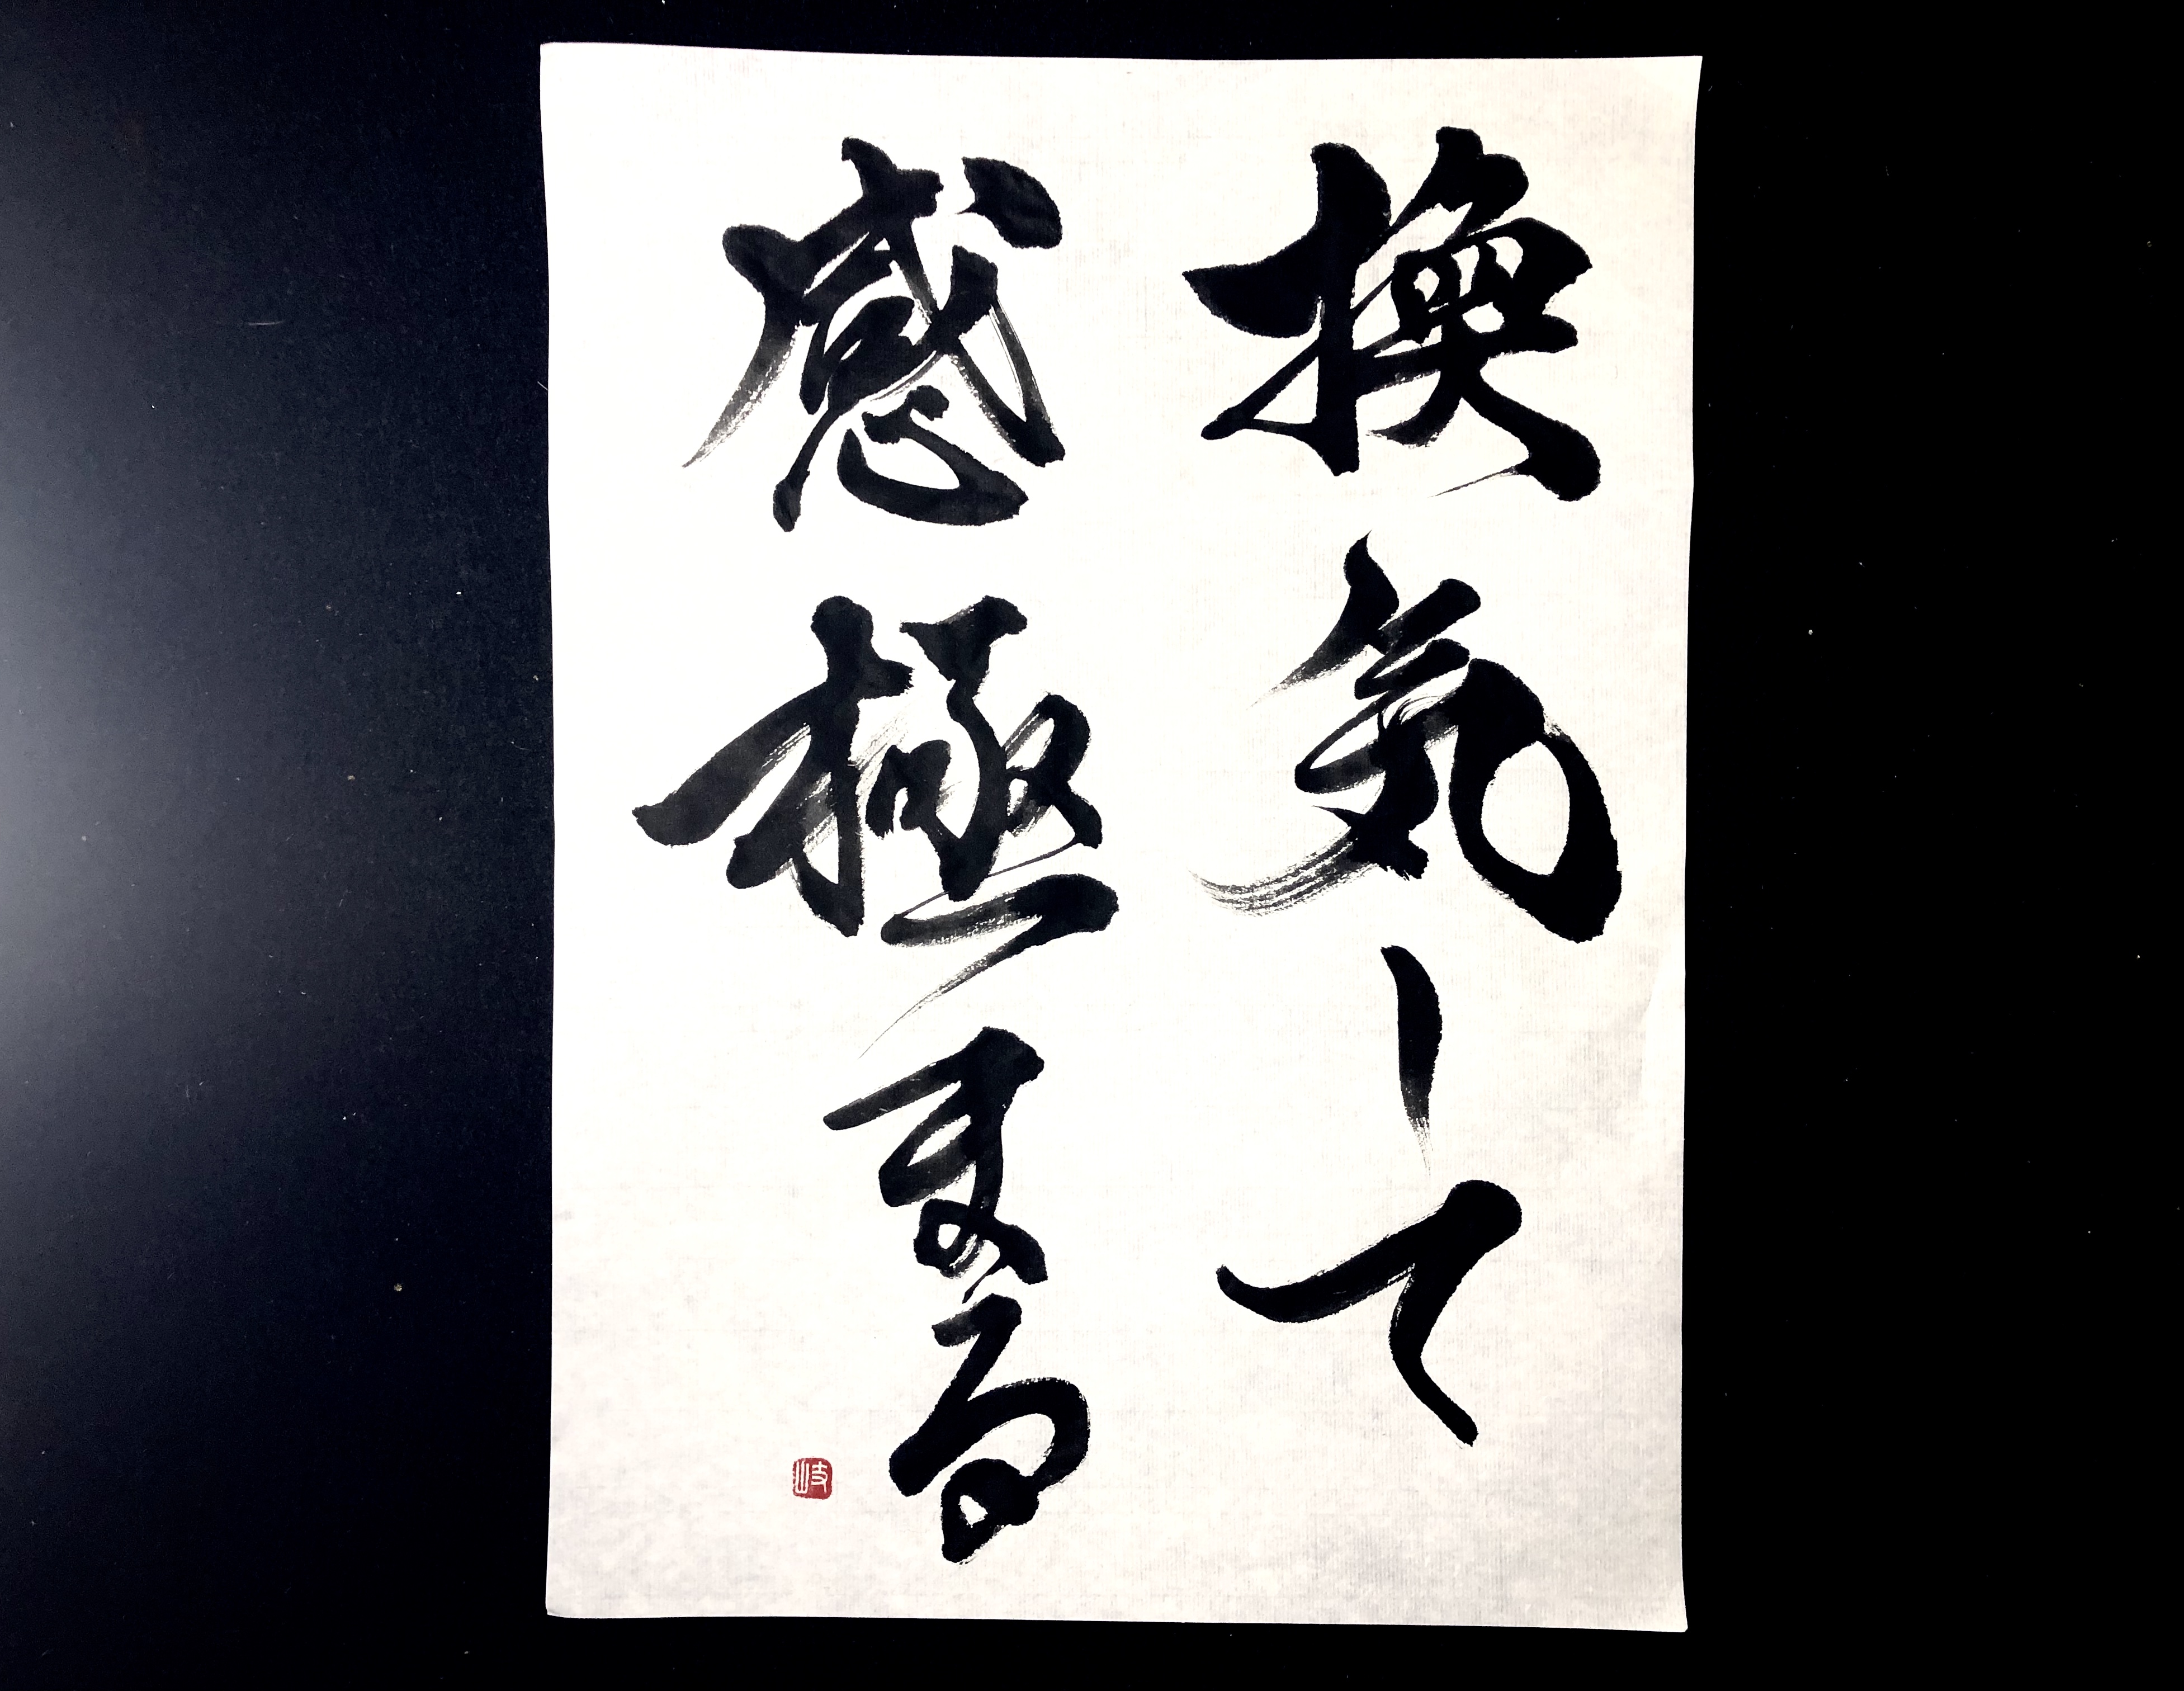 換気して
感極まる
岐